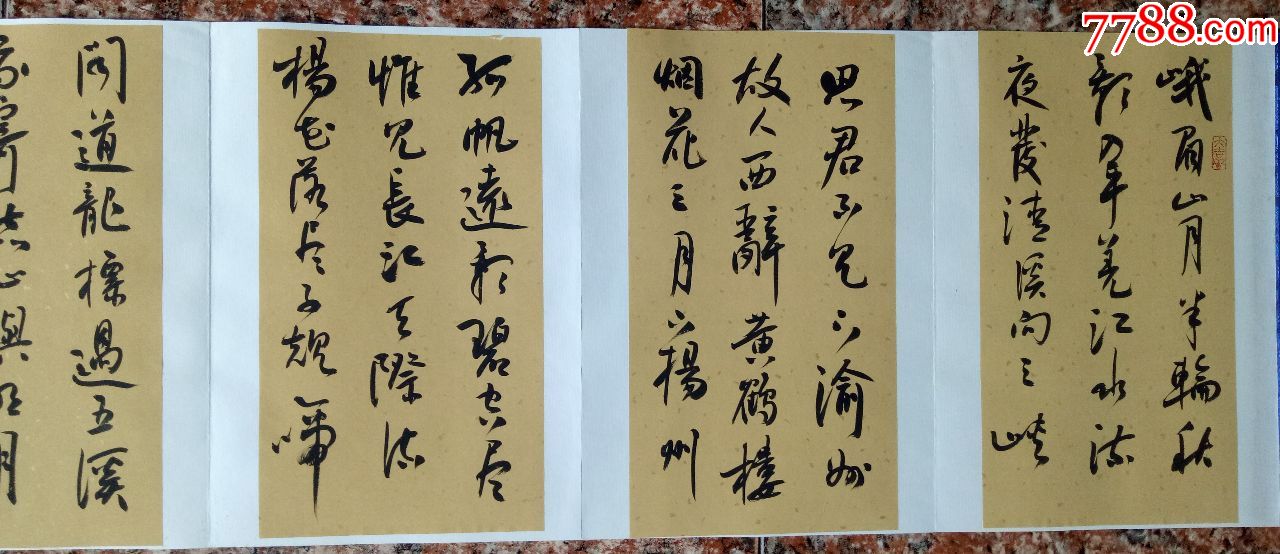 7788.com
峨眉山月半輪秋
影入平羌江水流
夜發清溪向三峡
思君不见下渝州
故人西辭黄鶴樓
烟花三月下楊州
孤帆遠影碧空尽
惟见長江天際流
楊花落尽子規啼
闻道龍標過五溪
我寄愁心與明月